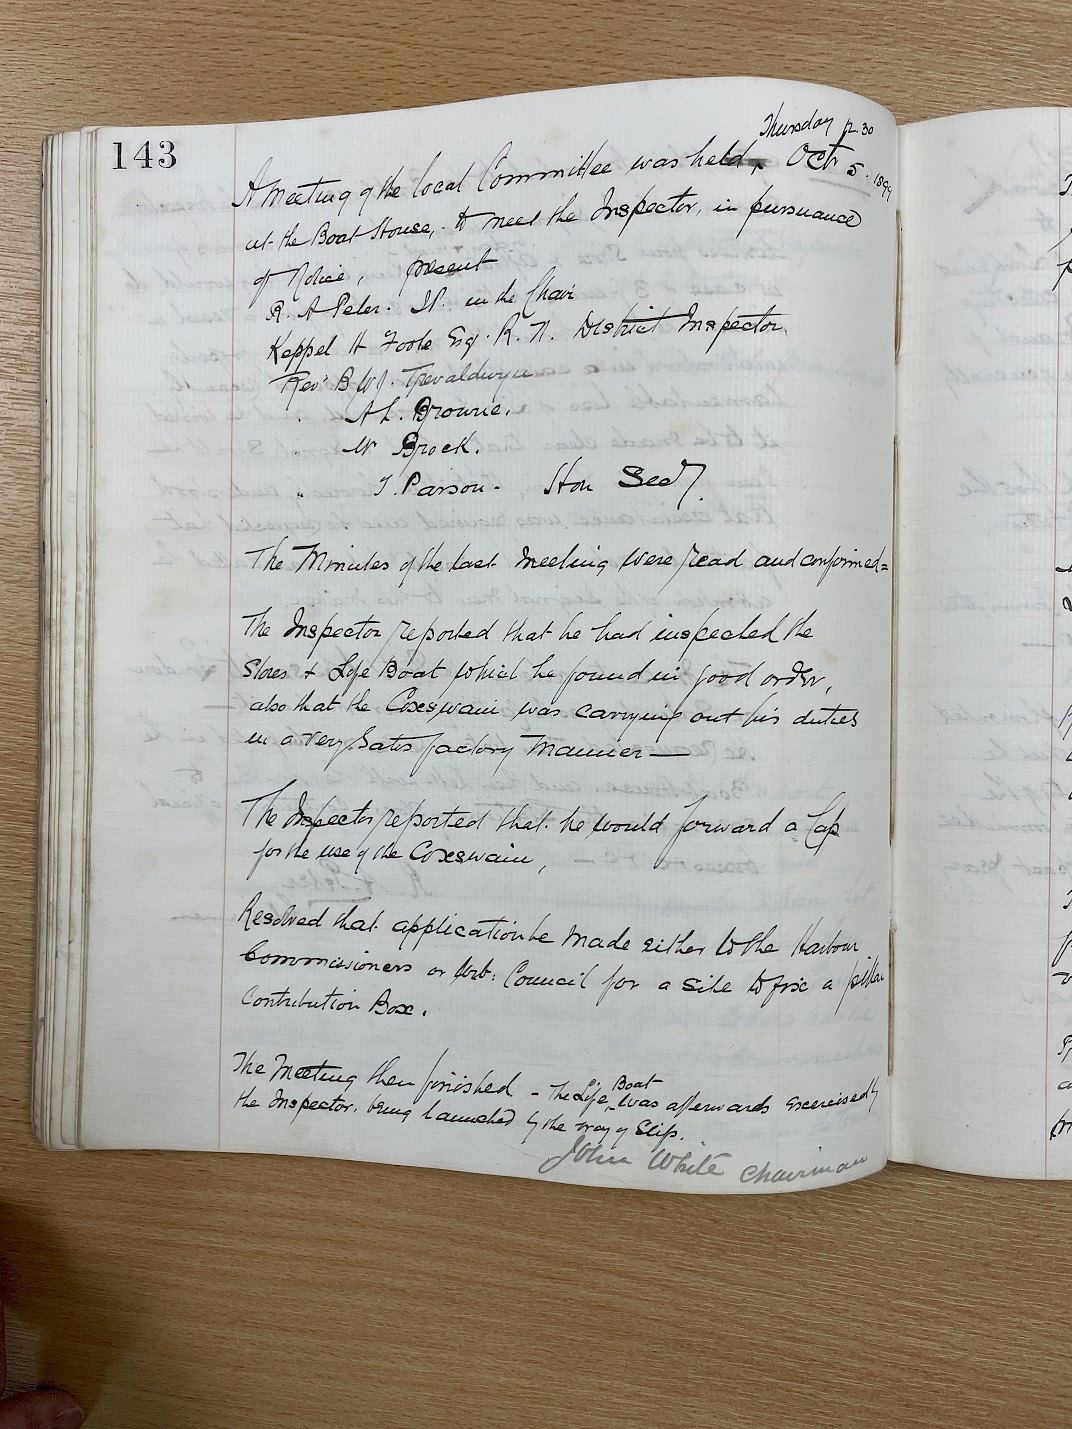 143
Thursday 12.30
A Meeting of the local Committee was held, Oct 5. 1899
at the Boat House, to meet the Inspector, in pursuance
of Notice, present
R. A Peter. J.P. in the Chair
Keppel H Foote Esq. R. N. District Inspector
Revd B W J. Trevaldwyn
A L. Browne.
W Brock.
" T. Parson - Hon Secy.
The Minutes of the last Meeting were read and confirmed =
The Inspector reported that he had inspected the
Stores + Life Boat which he found in good order,
also that the Coxswain was carrying out his duties
in a very satisfactory manner —
The Inspector reported that he would forward a Cap
for the use of the Coxswain,
Resolved that application be made either to the Harbour
Commissioners or Urb: Council for a site to fix a pillar
Contribution Box.
The Meeting then finished - The Life Boat was afterwards exercised by
the Inspector, being launched by the way of Slip.
John White Chairman